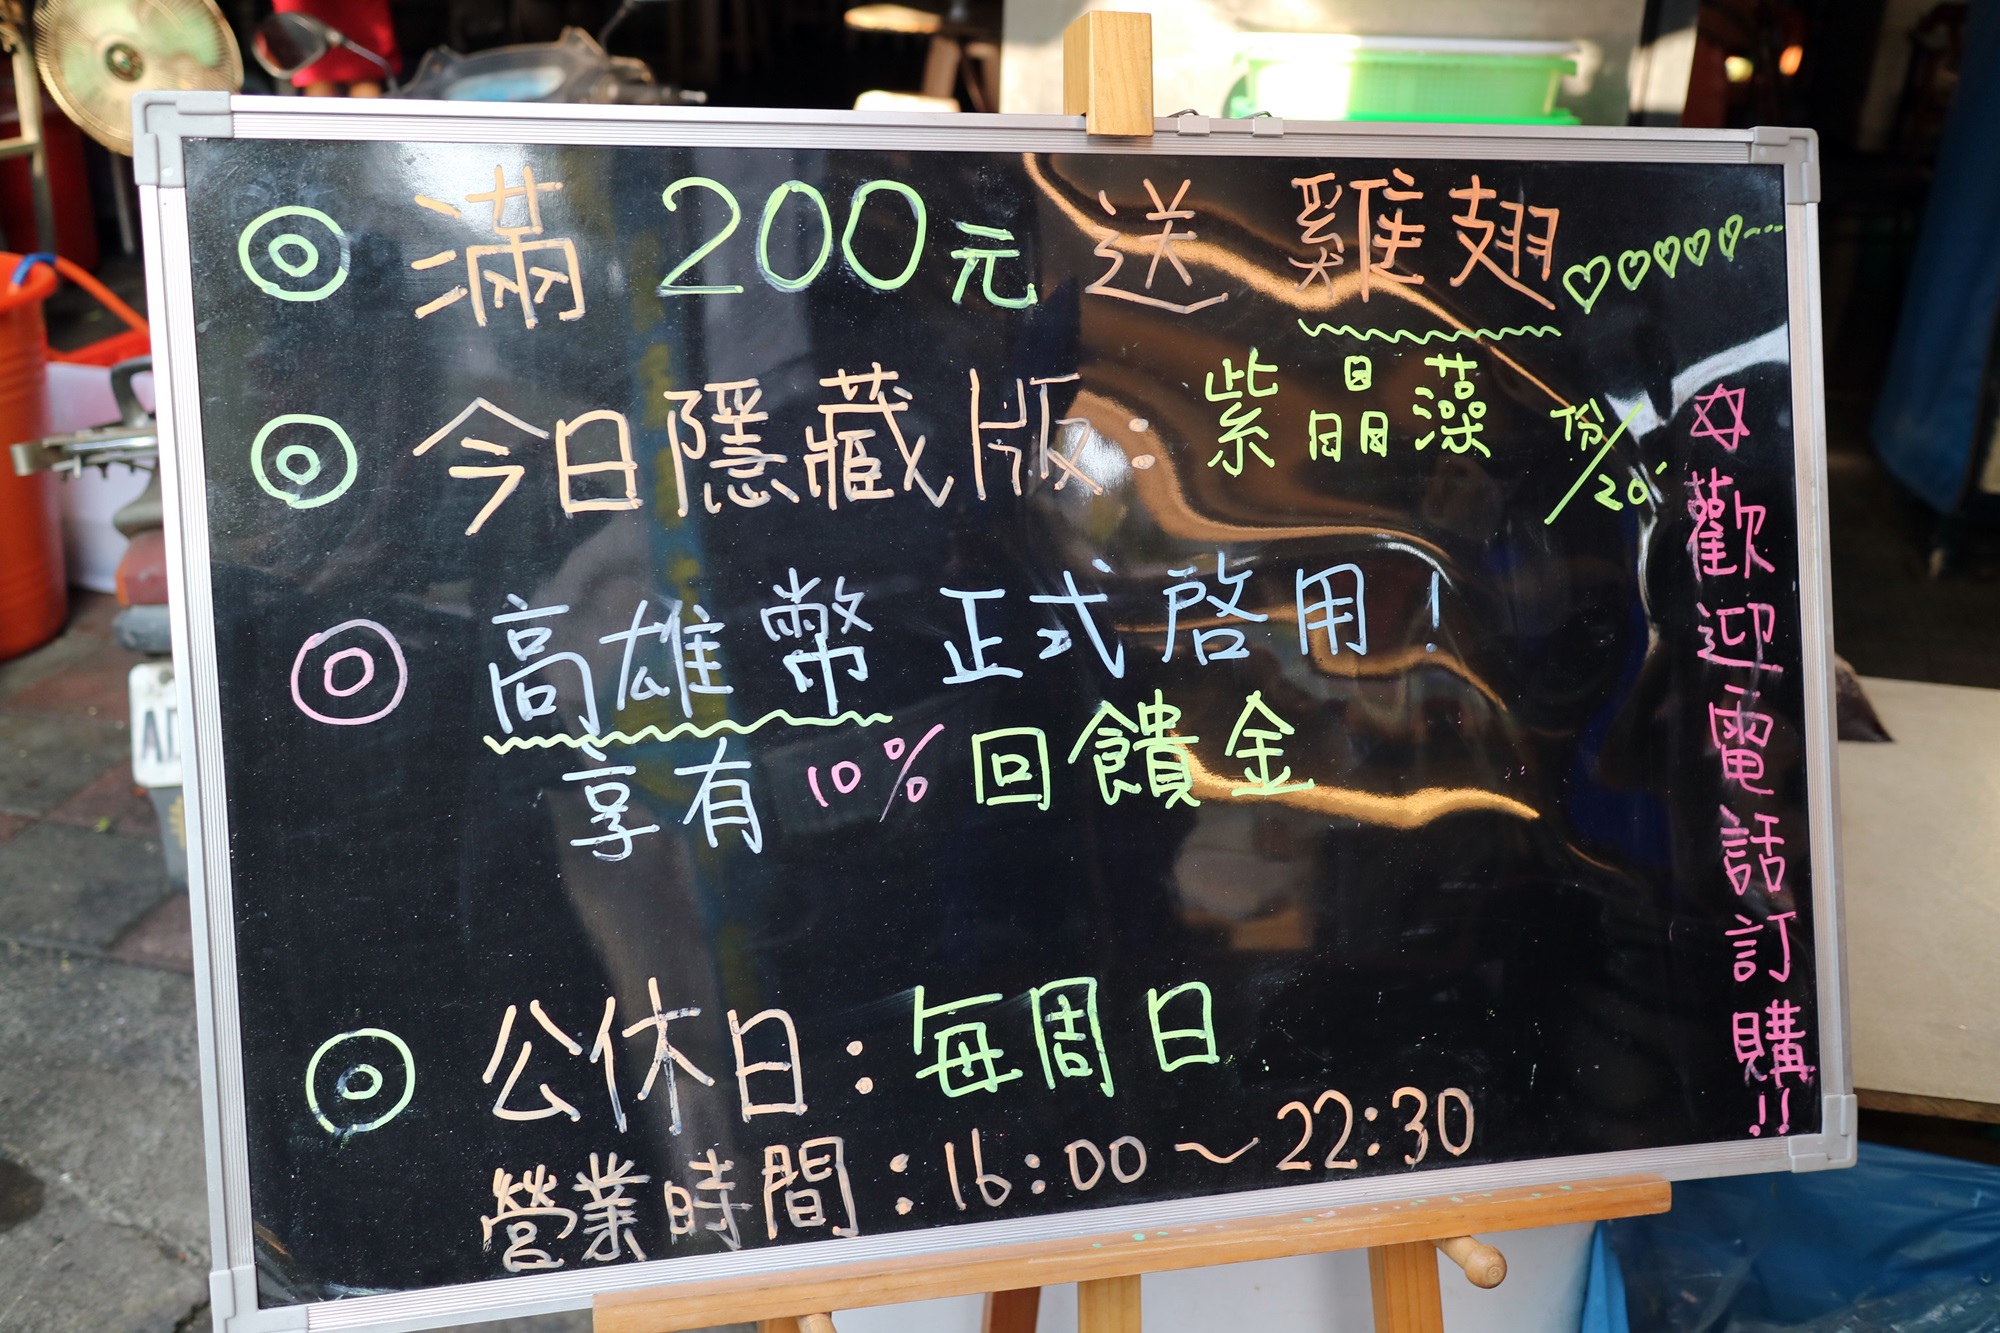 ◎ 滿 200元 送 雞翅 ♡♡♡♡♡---
◎ 今日隱藏版：紫晶藻 份/20
◎ 高雄幣 正式啓用！
享有 10% 回饋金
◎ 公休日：每周日
營業時間：16:00～22:30
✡歡迎電話訂購!!